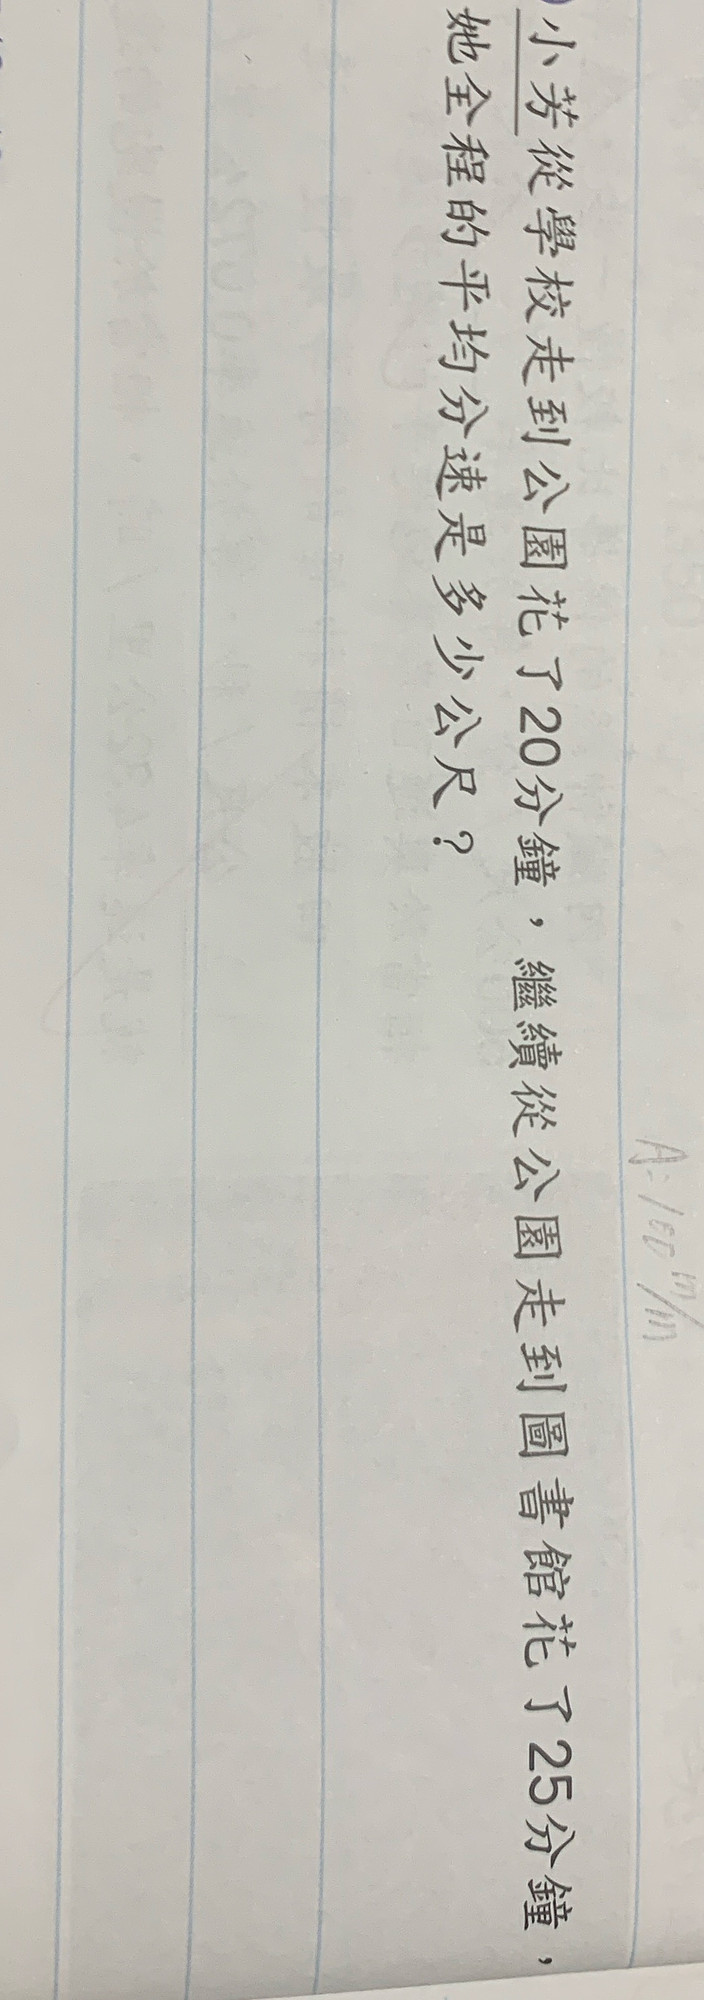 A: 100 m/m
小芳從學校走到公園花了20分鐘，繼續從公園走到圖書館花了25分鐘，
她全程的平均分速是多少公尺？